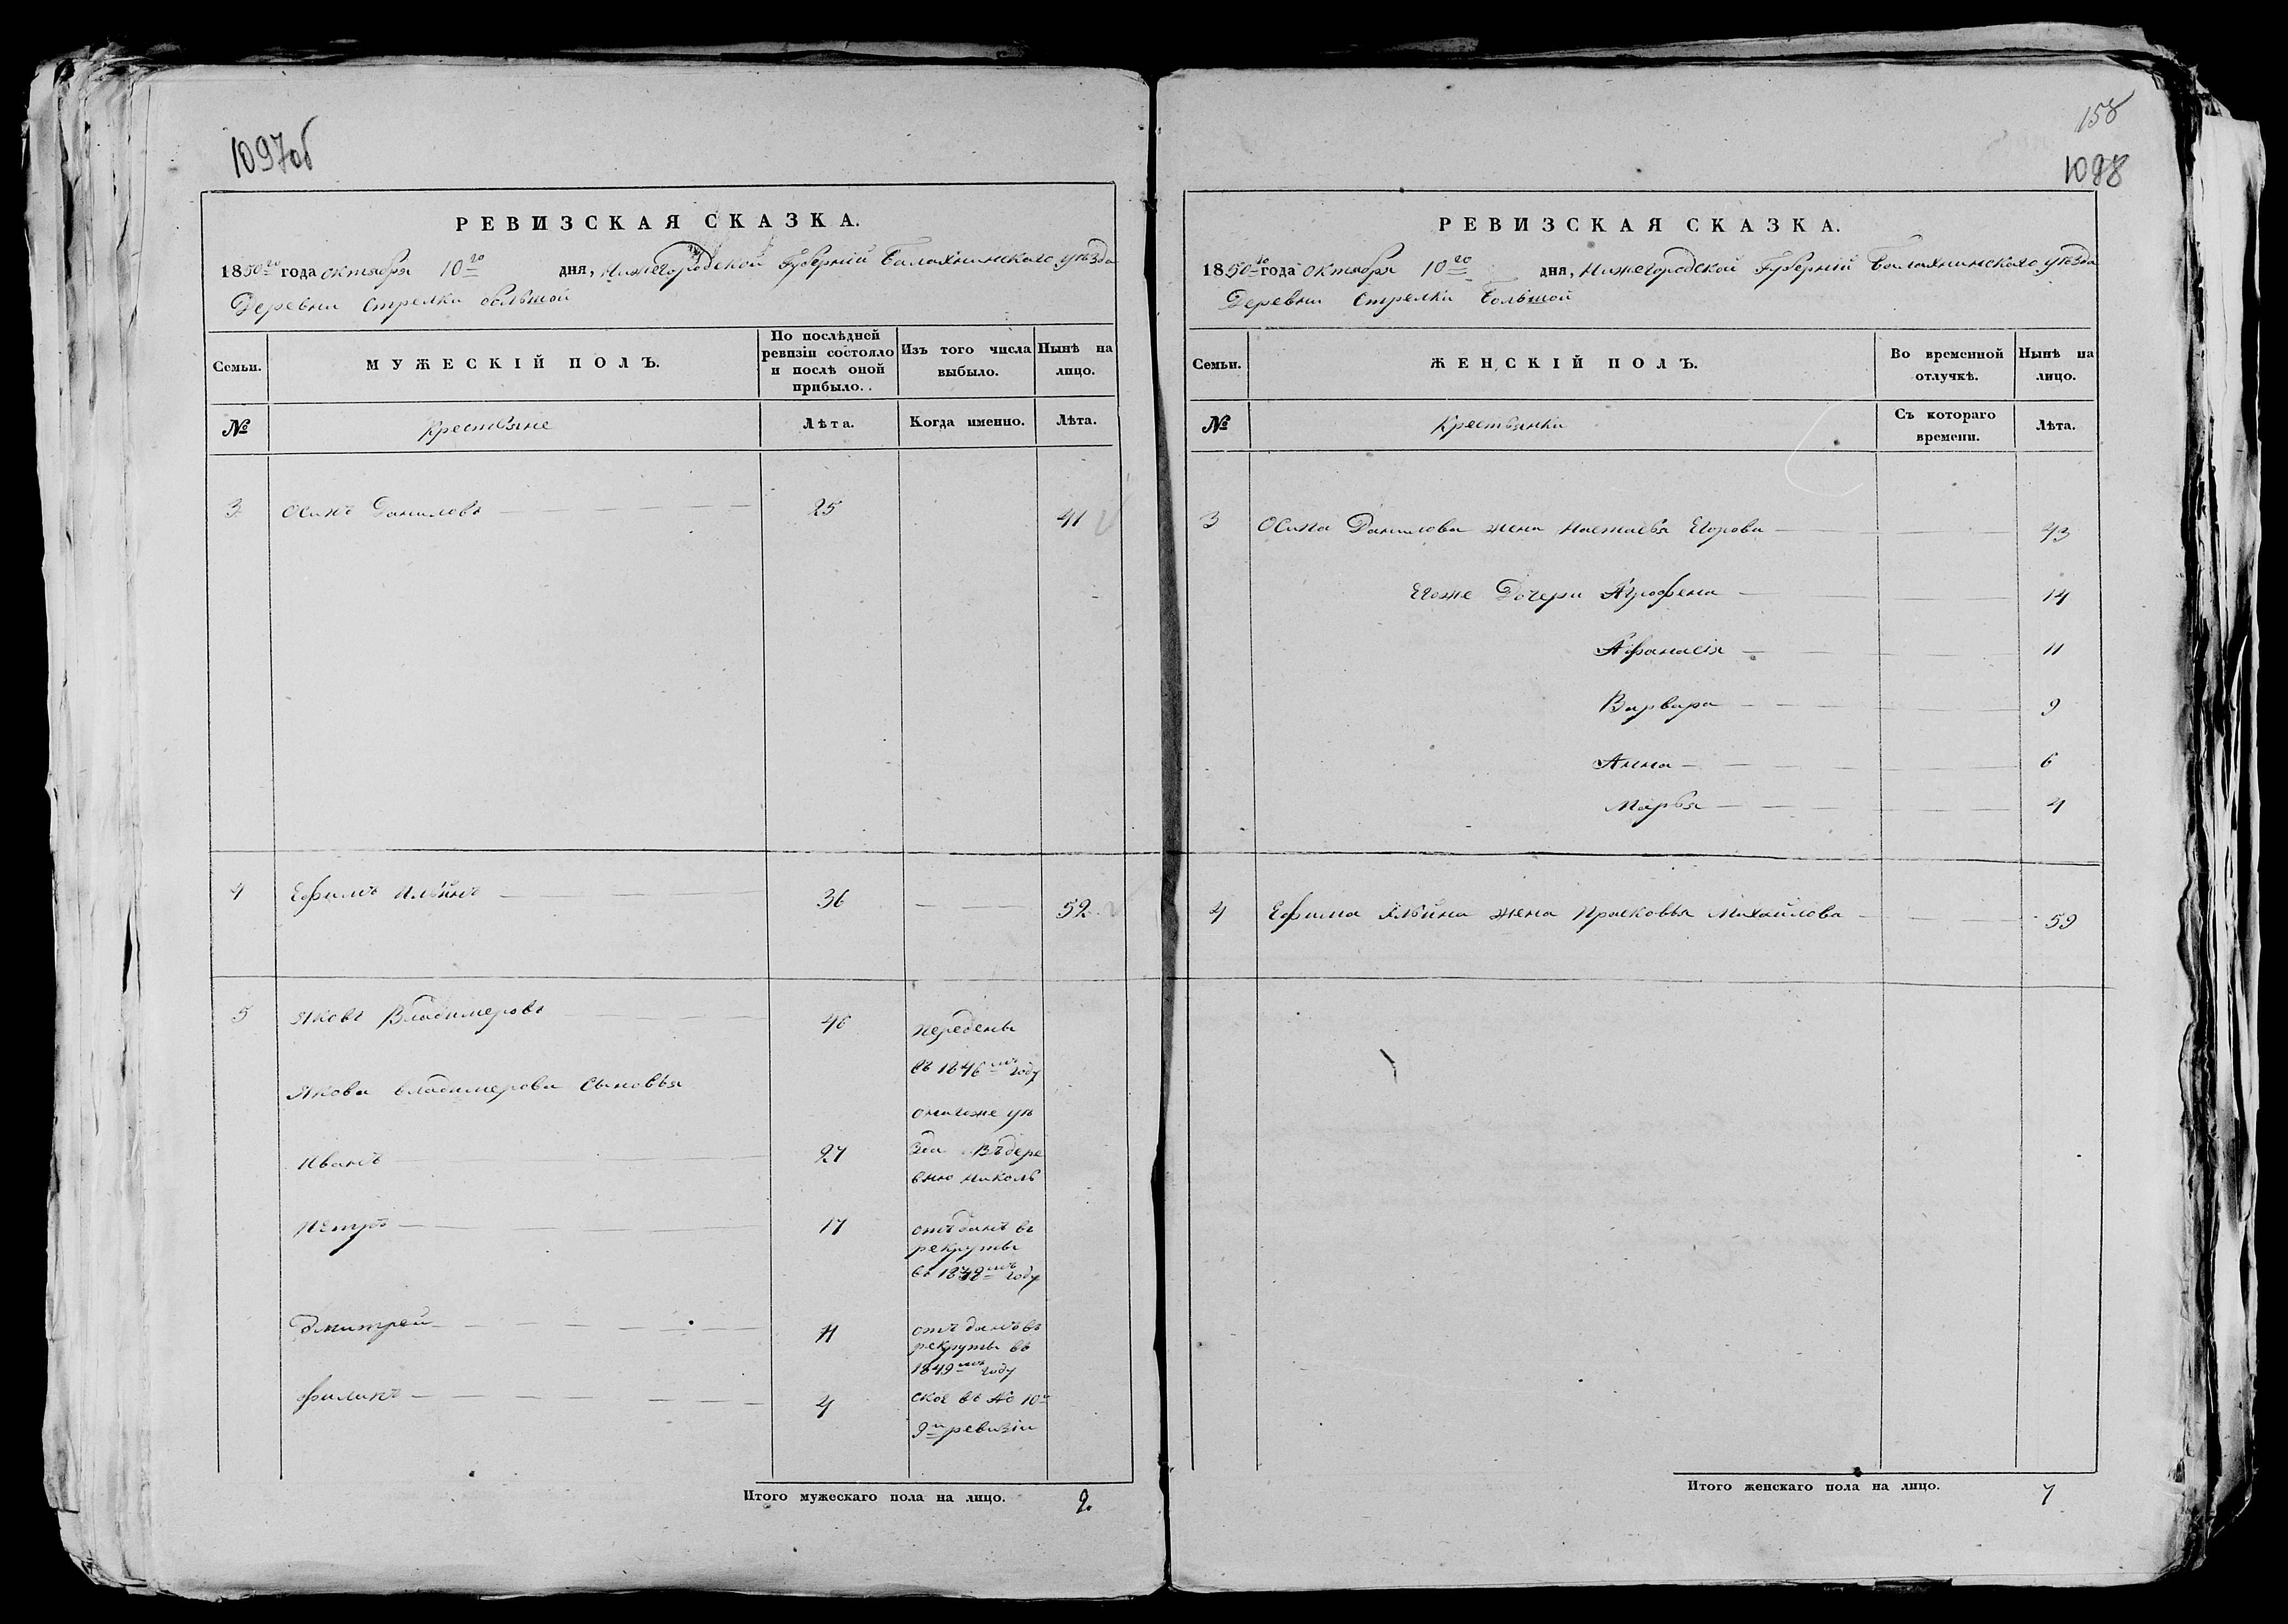 1097об
РЕВИЗСКАЯ СКАЗКА.
1850го года октября 10го дня, Нижегородской Губернiй Балахнинскаго уѣзда
Деревни Стрелки большой
Семьи.
МУЖЕСКІЙ ПОЛЪ.
По послѣдней ревизіи состояло и послѣ оной прибыло.
Изъ того числа выбыло.
Нынѣ на лицо.
№
Крестьяне
Лѣта.
Когда именно.
Лѣта.
3 Осипъ Даниловъ 25 41
4 Ефимъ Ильинъ 36 52
5 Яковъ Владимеровъ 46 переденъ
въ 1846мъ году
Якова владимерова сыновья
онагоже уѣ
Иванъ 27 зда въ дере
вню николь
Петръ 17 отъданъ въ
рекруты
въ 1848мъ году
Дмитрей 11 отъ данъ въ
рекруты въ
1849мъ году
Филипъ 4 ское въ № 10
9й ревизiи
Итого мужескаго пола на лицо. 2.
158
1098
РЕВИЗСКАЯ СКАЗКА.
1850го года октября 10го дня, Нижегородской Губернiй Балахнинскаго уѣзда
Деревни Стрелки Большой
Семьи.
ЖЕНСКІЙ ПОЛЪ.
Во временной отлучкѣ.
Нынѣ на лицо.
№
Крестьянки
Съ котораго времени.
Лѣта.
3 Осипа Данилова жена Настасья Егорова 43
Егоже Дочери Аграфена 14
Афанасiя 11
Варвара 9
Анна 6
Марья 4
4 Ефима Ильина жена Прасковья Михайлова 59
Итого женскаго пола на лицо. 7